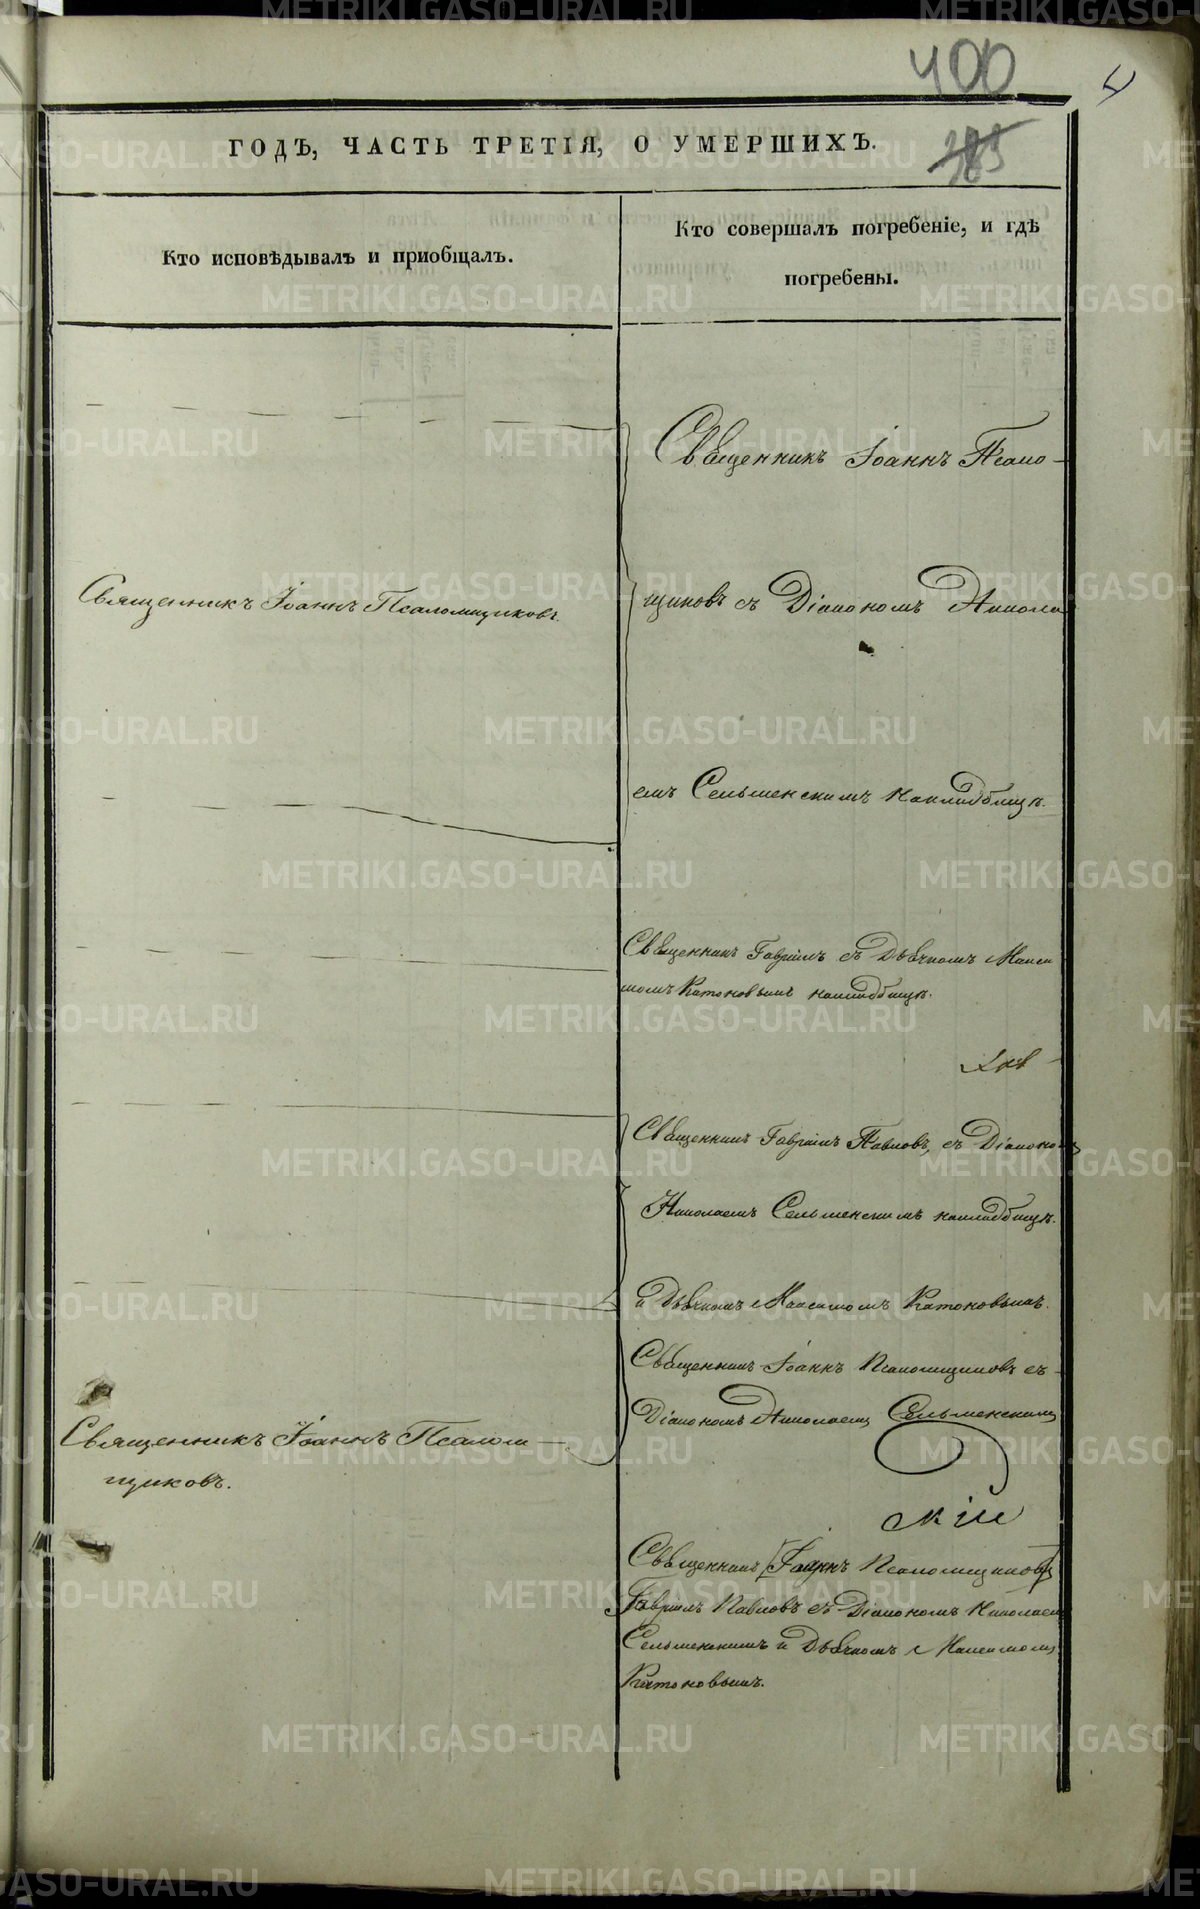 400
4
ГОДЪ, ЧАСТЬ ТРЕТІЯ, О УМЕРШИХЪ.
385
Кто исповѣдывалъ и пріобщалъ.
Кто совершалъ погребеніе, и гдѣ
погребены.
Священникъ Іоаннъ Псало-
Священникъ Іоаннъ Псаломщиковъ.
щиковъ съ Діакономъ Никола
емъ Сельменскимъ на кладбищѣ.
Священникъ Гавріилъ съ Дьячкомъ Макси
момъ Катоновымъ на кладбищѣ.
Священникъ Гавріилъ Павловъ, съ Діаконо
Николаемъ Сельменскимъ на кладбищѣ.
и Дьячкомъ Максимомъ Катоновымъ.
Священникъ Іоаннъ Псаломщиковъ съ
Діакономъ Николаемъ Сельменскимъ
Священникъ Іоаннъ Псалом-
щиковъ.
Священникъ Іоаннъ Псаломщиковъ
Гавріилъ Павловъ съ Діакономъ Николаем
Сельменскимъ и Дьячкомъ Максимомъ
Катоновымъ.
METRIKI.GASO-URAL.RU